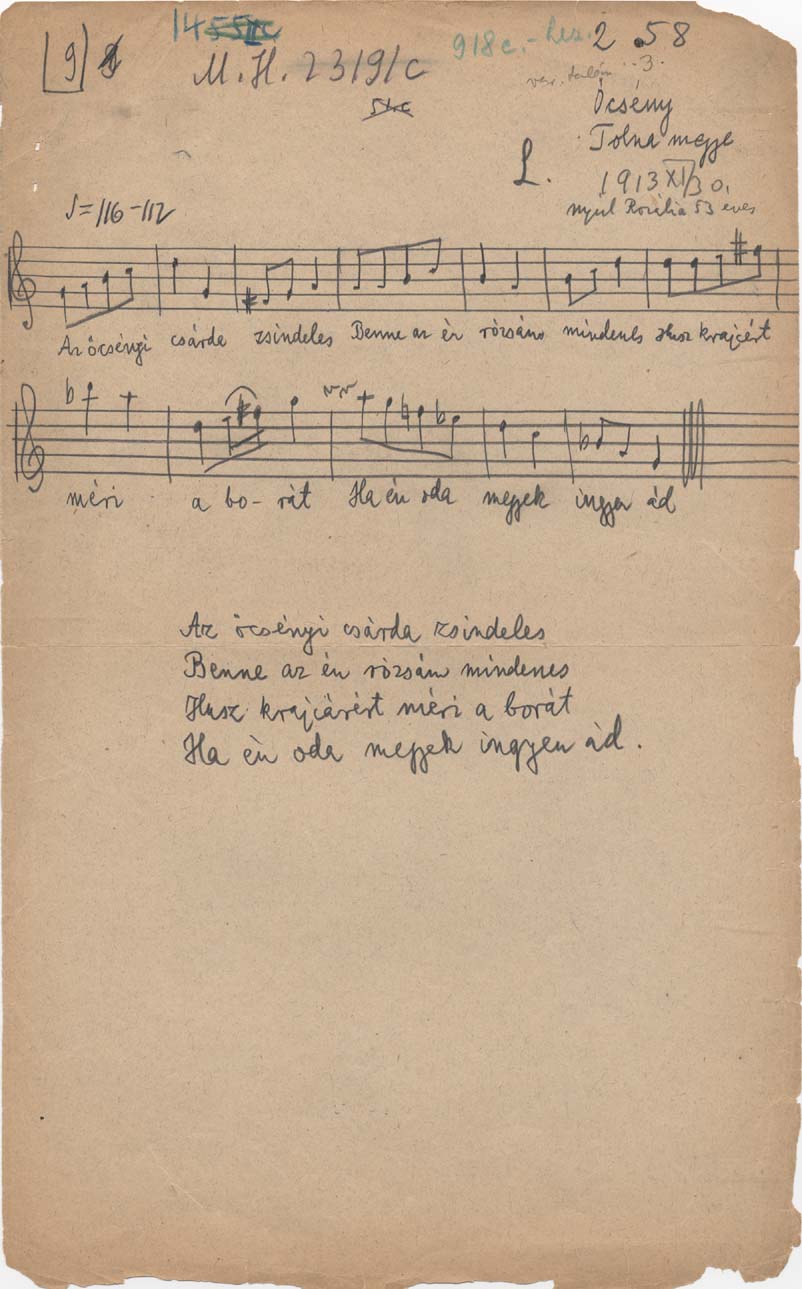 [9]
14
918c.-
2 58
M. H. 2319/c
51.c
3.
Öcsény
Tolna megye
L.
1913 XI/30.
♩=116-112
Nyúl Rozália 53 éves
Az öcsényi csárda zsindeles Benne az én rózsám mindenes Husz krajcért
méri a bo- rát Ha én oda megyek ingyen ád
Az öcsényi csárda zsindeles
Benne az én rózsám mindenes
Husz krajcárért méri a borát
Ha én oda megyek ingyen ád.